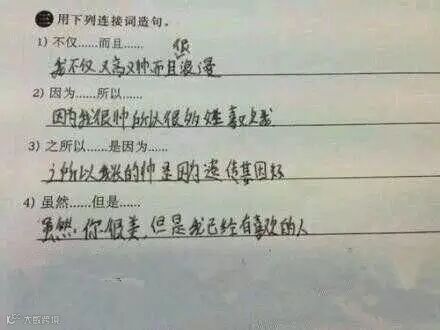 三 用下列连接词造句。
1) 不仅……而且……
很
我不仅又高又帅而且浪漫
2) 因为……所以……
因为我很帅所以很多姓喜欢我
3) 之所以……是因为……
之所以我长的帅是因为遗传基因好
4) 虽然……但是…
虽然,你很美,但是我已经有喜欢的人
大数跨境